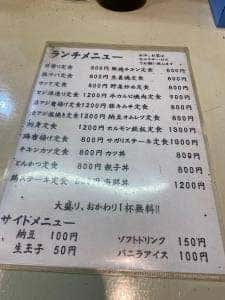 ランチメニュー
日替り定食 800円 豚焼チメン定食 800円
豚バラ定食 800円 生姜焼定食 800円
ラフテ定食 800円 野菜炒め定食 800円
セン漬造り定食 1200円 牛カルビ焼肉定食 1000円
カアジ唐揚げ定食 1200円 豚キムチ定食 800円
カアジ塩焼き定食 1200円 納豆オムレツ定食 800円
刺身定食 1200円 ホルモン鉄板定食 1000円
鶏唐揚げ定食 800円 サガリステーキ定食 1000円
チキンカツ定食 800円 カツ丼 800円
とんかつ定食 800円 親子丼 800円
鶏ステーキ定食 800円 海鮮丼 1200円
大盛り、おかわり1杯無料!!
サイドメニュー
納豆 100円 ソフトドリンク 150円
生玉子 50円 バニラアイス 100円